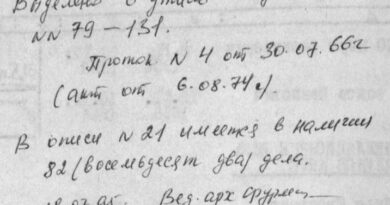 Выделено в утиль
NN 79 – 131.
Проток N 4 от 30.07.66г
(акт от 6.08.74г)
В описи N 21 имеется в наличии
82 (восемьдесят два) дела.
Вед. арх